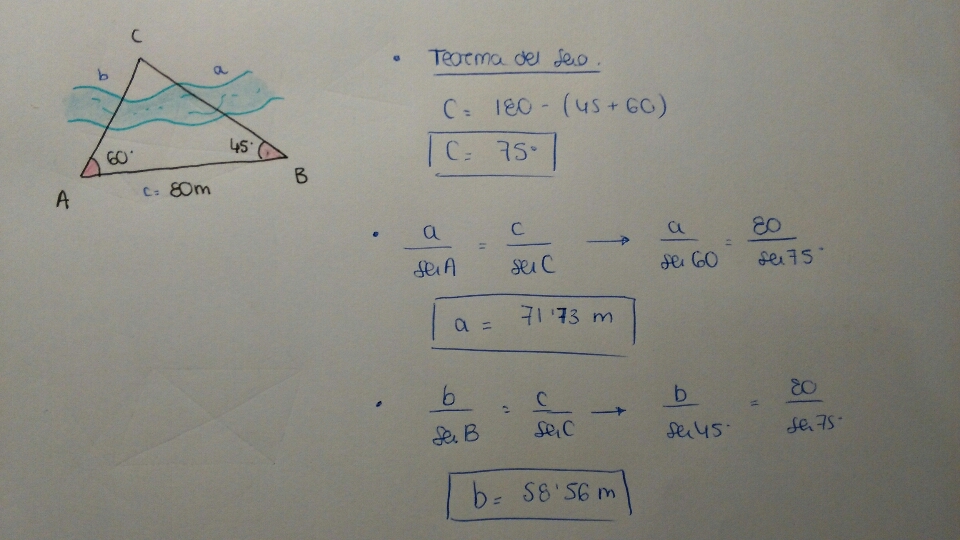 C
b a
60° 45°
A c= 80m B
• Teorema del Seno.
C = 180 - (45 + 60)
C = 75°
• a/senA = c/senC → a/sen60 = 80/sen75°
a = 71'73 m
• b/senB = c/senC → b/sen45° = 80/sen75°
b = 58'56 m